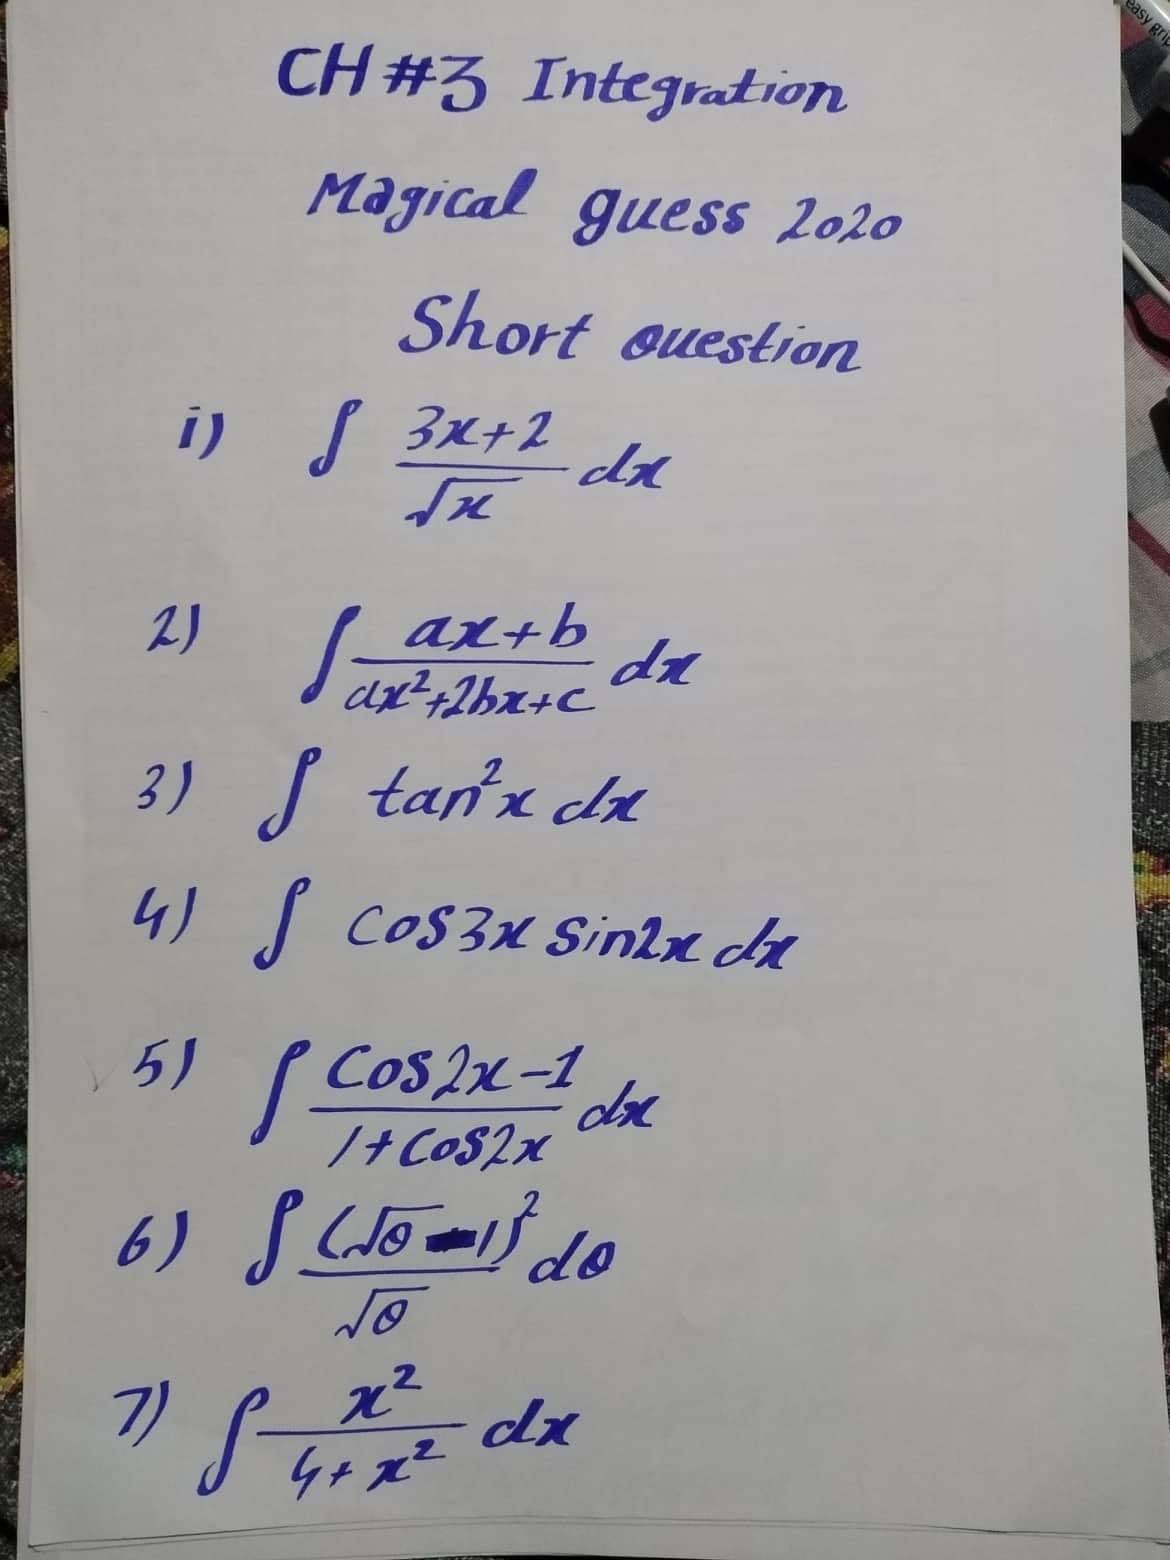 easy grip
CH #3 Integration
Magical guess 2020
Short question
i) ∫ (3x+2)/√x dx
2) ∫ (ax+b)/(ax²+2bx+c) dx
3) ∫ tan²x dx
4) ∫ cos3x sin2x dx
5) ∫ (Cos2x-1)/(1+Cos2x) dx
6) ∫ (√θ-1)²/√θ dθ
7) ∫ x²/(4+x²) dx